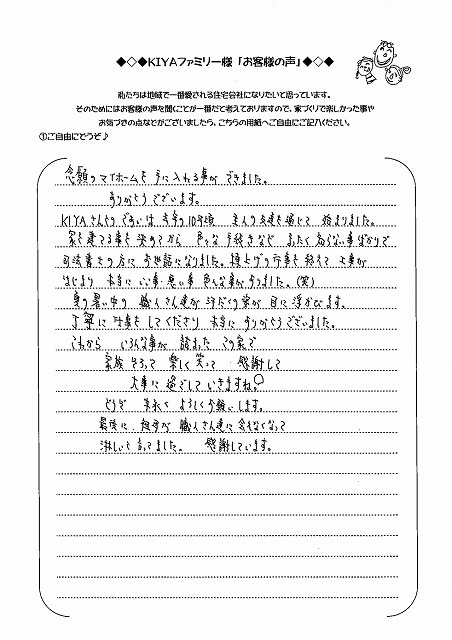 ◆◇◆KIYAファミリー様「お客様の声」◆◇◆
私たちは地域で一番愛される住宅会社になりたいと思っています。
そのためにはお客様の声を聞くことが一番だと考えておりますので、家づくりで楽しかった事や
お気づきの点などがございましたら、こちらの用紙へご自由にご記入ください。
①ご自由にどうぞ♪
念願のマイホームを手に入れる事ができました。
ありがとうございます。
KIYAさんとの出あいは 去年の10月頃 主人の友達を通じて 始まりました。
家を建てる事を決めてから 色々な手続きなど まったく知らない事ばかりで
司法書士の方に お世話になりました。棟上げの行事も終えて 工事が
はじまり 本当に いい事・悪い事 色んな事がありました。(笑)
夏の暑い中の 職人さん達が 汗だくの姿が 目に浮かびます。
丁寧に仕事をしてくださり 本当に ありがとうございました。
これから いろんな事が 詰まった この家で
家族 そろって 楽しく笑って 感謝して
大事に 過ごしていきますね。
どうぞ 末永く よろしくお願いします。
最後に 祖母が 職人さん達に 会えなくなって
淋しいと言ってました。 感謝しています。